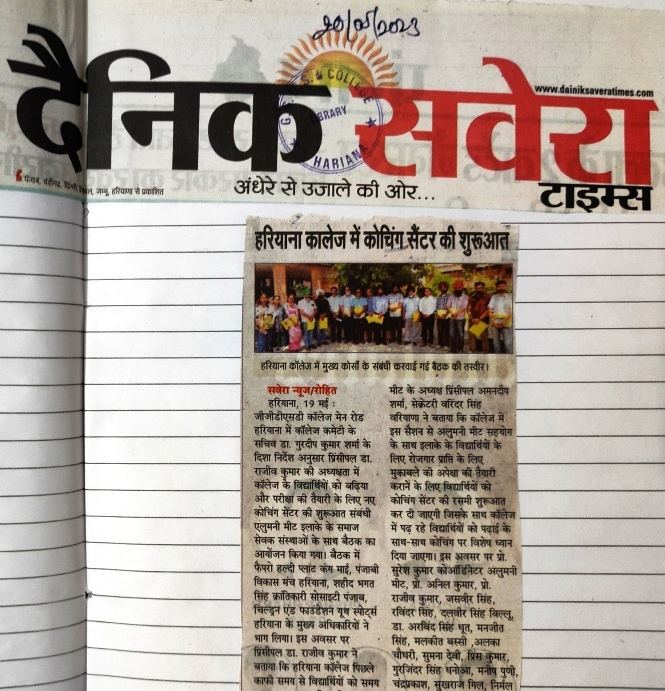 20/05/2023
दैनिक सवेरा
www.dainiksaveratimes.com
टाइम्स
G.G.D.S.D. COLLEGE
LIBRARY
HARIANA
पंजाब, चंडीगढ़, दिल्ली, हिमाचल, जम्मू, हरियाणा से प्रकाशित
अंधेरे से उजाले की ओर...
हरियाना कालेज में कोचिंग सैंटर की शुरूआत
हरियाना कॉलेज में मुख्य कोर्सों के संबंधी करवाई गई बैठक की तस्वीर।
सवेरा न्यूज/रोहित
हरियाना, 19 मई :
जीजीडीएसडी कॉलेज मेन रोड
हरियाना में कॉलेज कमेटी के
सचिव डा. गुरदीप कुमार शर्मा के
दिशा निर्देश अनुसार प्रिंसीपल डा.
राजीव कुमार की अध्यक्षता में
कॉलेज के विद्यार्थियों को बढ़िया
और परीक्षा की तैयारी के लिए नए
कोचिंग सैंटर की शुरुआत संबंधी
एलुमनी मीट इलाके के समाज
सेवक संस्थाओं के साथ बैठक का
आयोजन किया गया। बैठक में
फैपरो हल्दी प्लांट कंग माई, पंजाबी
विकास मंच हरियाना, शहीद भगत
सिंह क्रांतिकारी सोसाइटी पंजाब,
चिल्ड्रन एंड फाउंडेशन यूथ स्पोर्ट्स
हरियाना के मुख्य अधिकारियों ने
भाग लिया। इस अवसर पर
प्रिंसीपल डा. राजीव कुमार ने
बताया कि हरियाना कॉलेज पिछले
काफी समय से विद्यार्थियों को समय
मीट के अध्यक्ष प्रिंसीपल अमनदीप
शर्मा, सेक्रेटरी वरिंदर सिंह
वरियाणा ने बताया कि कॉलेज में
इस सैशन से अलुमनी मीट सहयोग
के साथ इलाके के विद्यार्थियों के
लिए रोजगार प्राप्ति के लिए
मुकाबले की अपेक्षा की तैयारी
कराने के लिए विद्यार्थियों को
कोचिंग सेंटर की रसमी शुरूआत
कर दी जाएगी जिसके साथ कॉलेज
में पढ़ रहे विद्यार्थियों को पढ़ाई के
साथ-साथ कोचिंग पर विशेष ध्यान
दिया जाएगा। इस अवसर पर प्रो.
सुरेश कुमार कोऑर्डिनेटर अलुमनी
मीट, प्रो. अनिल कुमार, प्रो.
राजीव कुमार, जसवीर सिंह,
रविंदर सिंह, दलवीर सिंह बिल्लू,
डा. अरविंद सिंह धूत, मनजीत
सिंह, मलकीत बस्सी ,अलका
चौधरी, सुमना देवी, प्रिंस कुमार,
गुरजिंदर सिंह धनोआ, मनीष पुणी,
चंद्रप्रकाश, सुखराज गिल, निर्मल